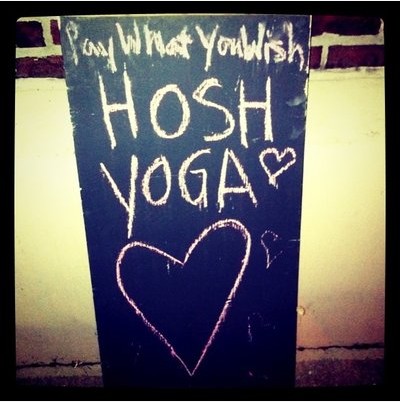 Pay What You Wish
HOSH
YOGA